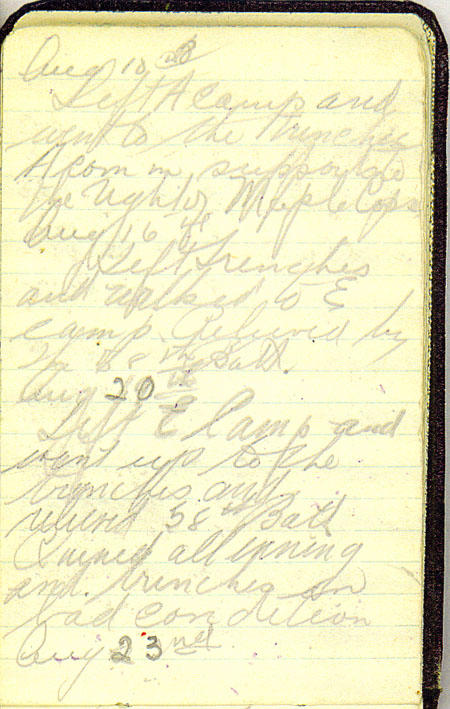 Aug 10th
Left A camp and
went to the trenches
A com in support on
the right of Maple Cops
Aug 16th
Left Trenches
and walked to E
camp relieved by
58th Batt.
Aug 20th
Left E Camp and
went up to the
trenches and
relieved 58th Batt
Rained all evning
and trenches in
bad condition
Aug 23rd